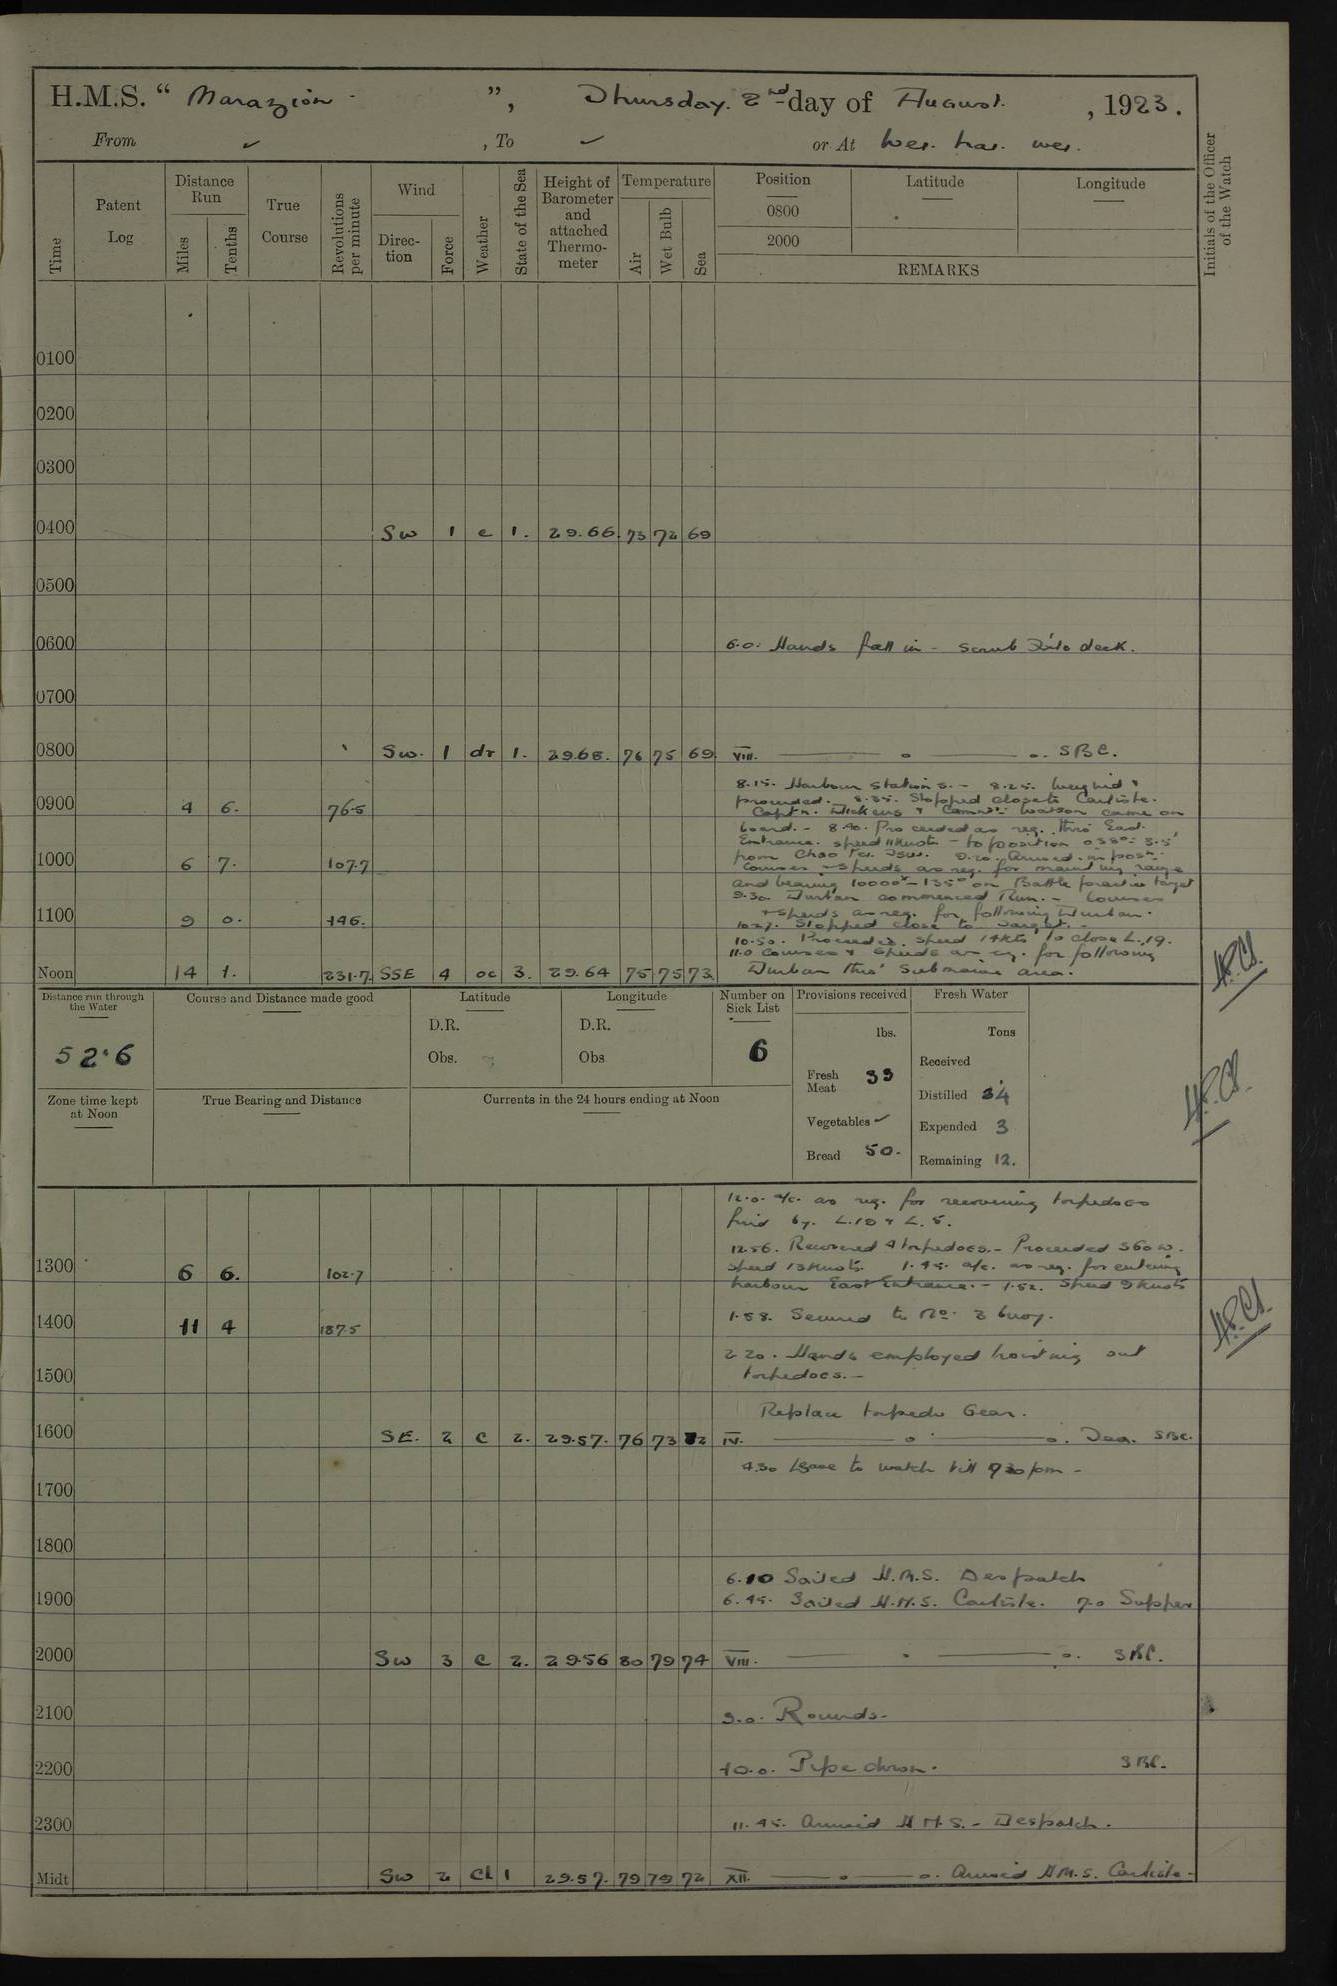 H.M.S. “ Marazion ”, Thursday. 2nd day of August. , 1923.
From ✓ , To ✓ or At Wei. hai. wei.
Time
Patent Log
Distance Run
Miles
Tenths
True Course
Revolutions per minute
Wind
Direc-tion
Force
Weather
State of the Sea
Height of Barometer and attached Thermo-meter
Temperature
Air
Wet Bulb
Sea
Position
0800
2000
Latitude
Longitude
REMARKS
Initials of the Officer of the Watch
0100
0200
0300
0400 SW 1 c 1. 29.66. 73 72 69
0500
0600 6.0. Hands fall in - scrub deck.
0700
0800 SW. 1 dr 1. 29.68. 76 75 69 VIII. SBC.
8.15. Harbour Stations. - 8.25. Weighed &
proceeded. - 8.35. Stopped close to Carlisle.
0900 4 6. 76.5 Captn. Dickens & Commdr. Watson came on
board. - 8.40. Proceeded as req. thro' East
Entrance. speed 11 knots - to position 038° 3.5'
1000 6 7. 107.7 from 9.20. Arrived in posn.
Courses & Speeds as req. for maintaining range
and bearing 10000x - 135° on Battle practice target
9.30. Durban commenced Run. - Courses
1100 9 0. 146. & speeds as req. for following Durban.
10.27. Stopped close to target. -
10.50. Proceeded. speed 14 kts to close L.19.
11.0 Courses & Speeds as req. for following
Noon 14 1. 231.7 SSE 4 oc 3. 29.64 75 75 73 Durban thro' Submarine area.
Distance run through the Water
52.6
Course and Distance made good
Latitude
D.R.
Obs.
Longitude
D.R.
Obs
Number on Sick List
6
Provisions received
lbs.
Fresh Meat 33
Vegetables ✓
Bread 50.
Fresh Water
Tons
Received
Distilled
Expended 3
Remaining 12.
Zone time kept at Noon
True Bearing and Distance
Currents in the 24 hours ending at Noon
12.0. a/c. as req. for recovering torpedoes
fired by. L.19 & L.5.
12.56. Recovered 4 torpedoes. - Proceeded S60W.
1300 6 6. 102.7 speed 13 knots. 1.45. a/c. as req. for entering
harbour East Entrance. - 1.52. Speed 9 knots
1400 11 4 187.5 1.58. Secured to No. 2 buoy.
2.20. Hands employed hoisting out
1500 torpedoes. -
Replace torpedo Gear.
1600 SE. 2 c 2. 29.57. 76 73 72 IV. SBC.
4.30 Leave to watch till 9.30 pm -
1700
1800
6.10 Sailed H.M.S. Despatch
1900 6.45. Sailed H.M.S. Carlisle. 7.0 Supper
2000 SW 3 c 2. 29.56 80 79 74 VIII. SBC.
2100 9.0. Rounds.
2200 10.0. Pipe down. SBC.
2300 11.45. Arrived H.M.S. - Despatch.
Midt SW 2 cl 1 29.57. 79 79 72 XII. Arrived H.M.S. Carlisle.